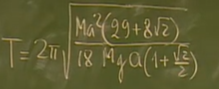 T = 2π √(Ma²(29+8√2) / 18 Mga(1+√2/2))